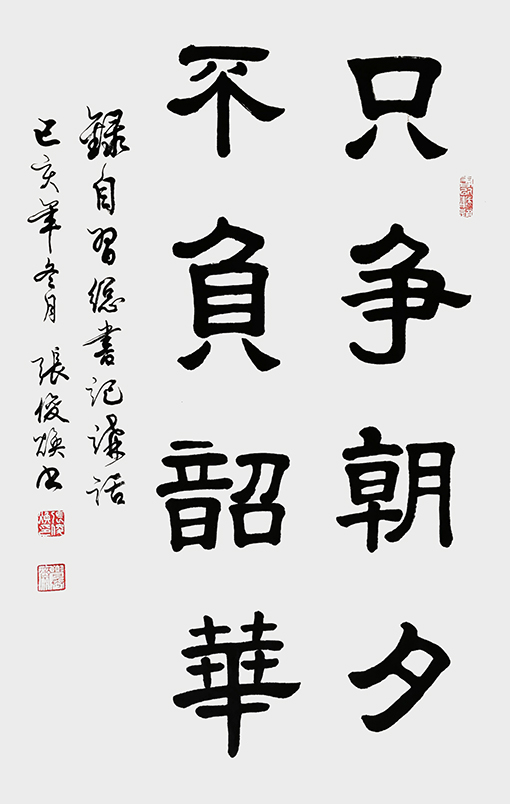 只争朝夕
不負韶華
錄自習總書記講話
己亥年冬月 張俊煥書